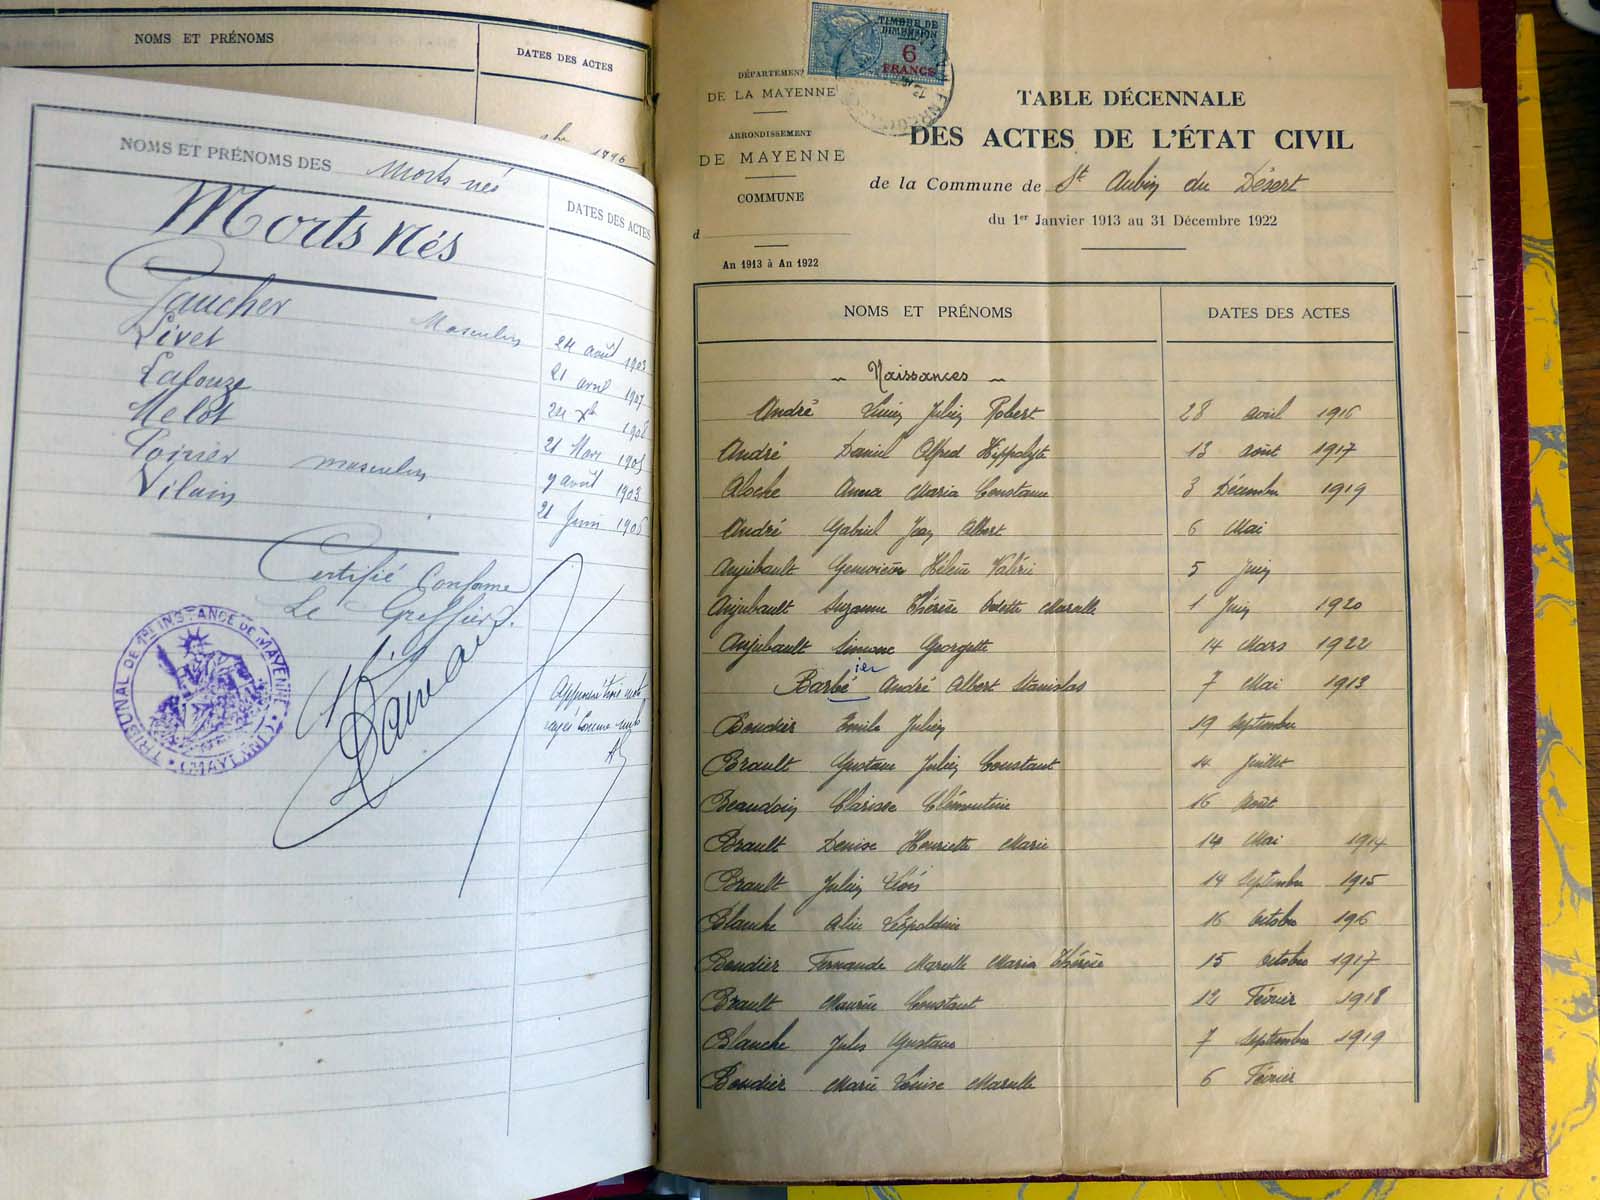 NOMS ET PRÉNOMS
DATES DES ACTES
1896
NOMS ET PRÉNOMS DES Morts nés
DATES DES ACTES
Morts Nés
Gaucher Masculin 24 août 1903
Livet 21 avril 1907
Lalouze 24 Xbre 1908
Melot 21 Mars 1905
Poirier masculin 9 août 1903
Vilain 21 Juin 1906
Certifié Conforme
Le Greffier.
TRIBUNAL DE 1ère INSTANCE DE MAYENNE
(MAYENNE)
TIMBRE DE
DIMENSION
6
FRANCS
DÉPARTEMENT
DE LA MAYENNE
ARRONDISSEMENT
DE MAYENNE
COMMUNE
d
An 1913 à An 1922
TABLE DÉCENNALE
DES ACTES DE L'ÉTAT CIVIL
de la Commune de St Aubin du Désert
du 1er Janvier 1913 au 31 Décembre 1922
NOMS ET PRÉNOMS DATES DES ACTES
~ Naissances ~
André Julien Robert 28 avril 1916
André Daniel Alfred Hippolyte 13 août 1917
Aloche Anna Maria Constance 3 Décembre 1919
André Gabriel Jean Albert 6 Mai
Anjubault Geneviève Hélène Valérie 5 Juin
Anjubault Suzanne Thérèse Odette Marcelle 1 Juin 1920
Anjubault Simone Georgette 14 Mars 1922
ier
Barbé André Albert Stanislas 7 Mai 1913
Boudier Emile Julien 19 Septembre
Brault Gustave Julien Constant 14 Juillet
Beaudoin Clarisse Clémentine 16 Août
Brault Denise Henriette Marie 14 Mai 1914
Brault Julien Léon 14 Septembre 1915
Blanche Alice Léopoldine 16 Octobre 1916
Boudier Fernande Marcelle Maria Thérèse 15 Octobre 1917
Brault Maurice Constant 12 Février 1918
Blanche Jules Gustave 7 Septembre 1919
Boudier Marie Louise Marcelle 6 Février